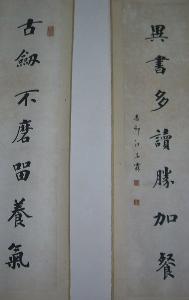 異書多讀勝加餐
古劔不磨留養氣